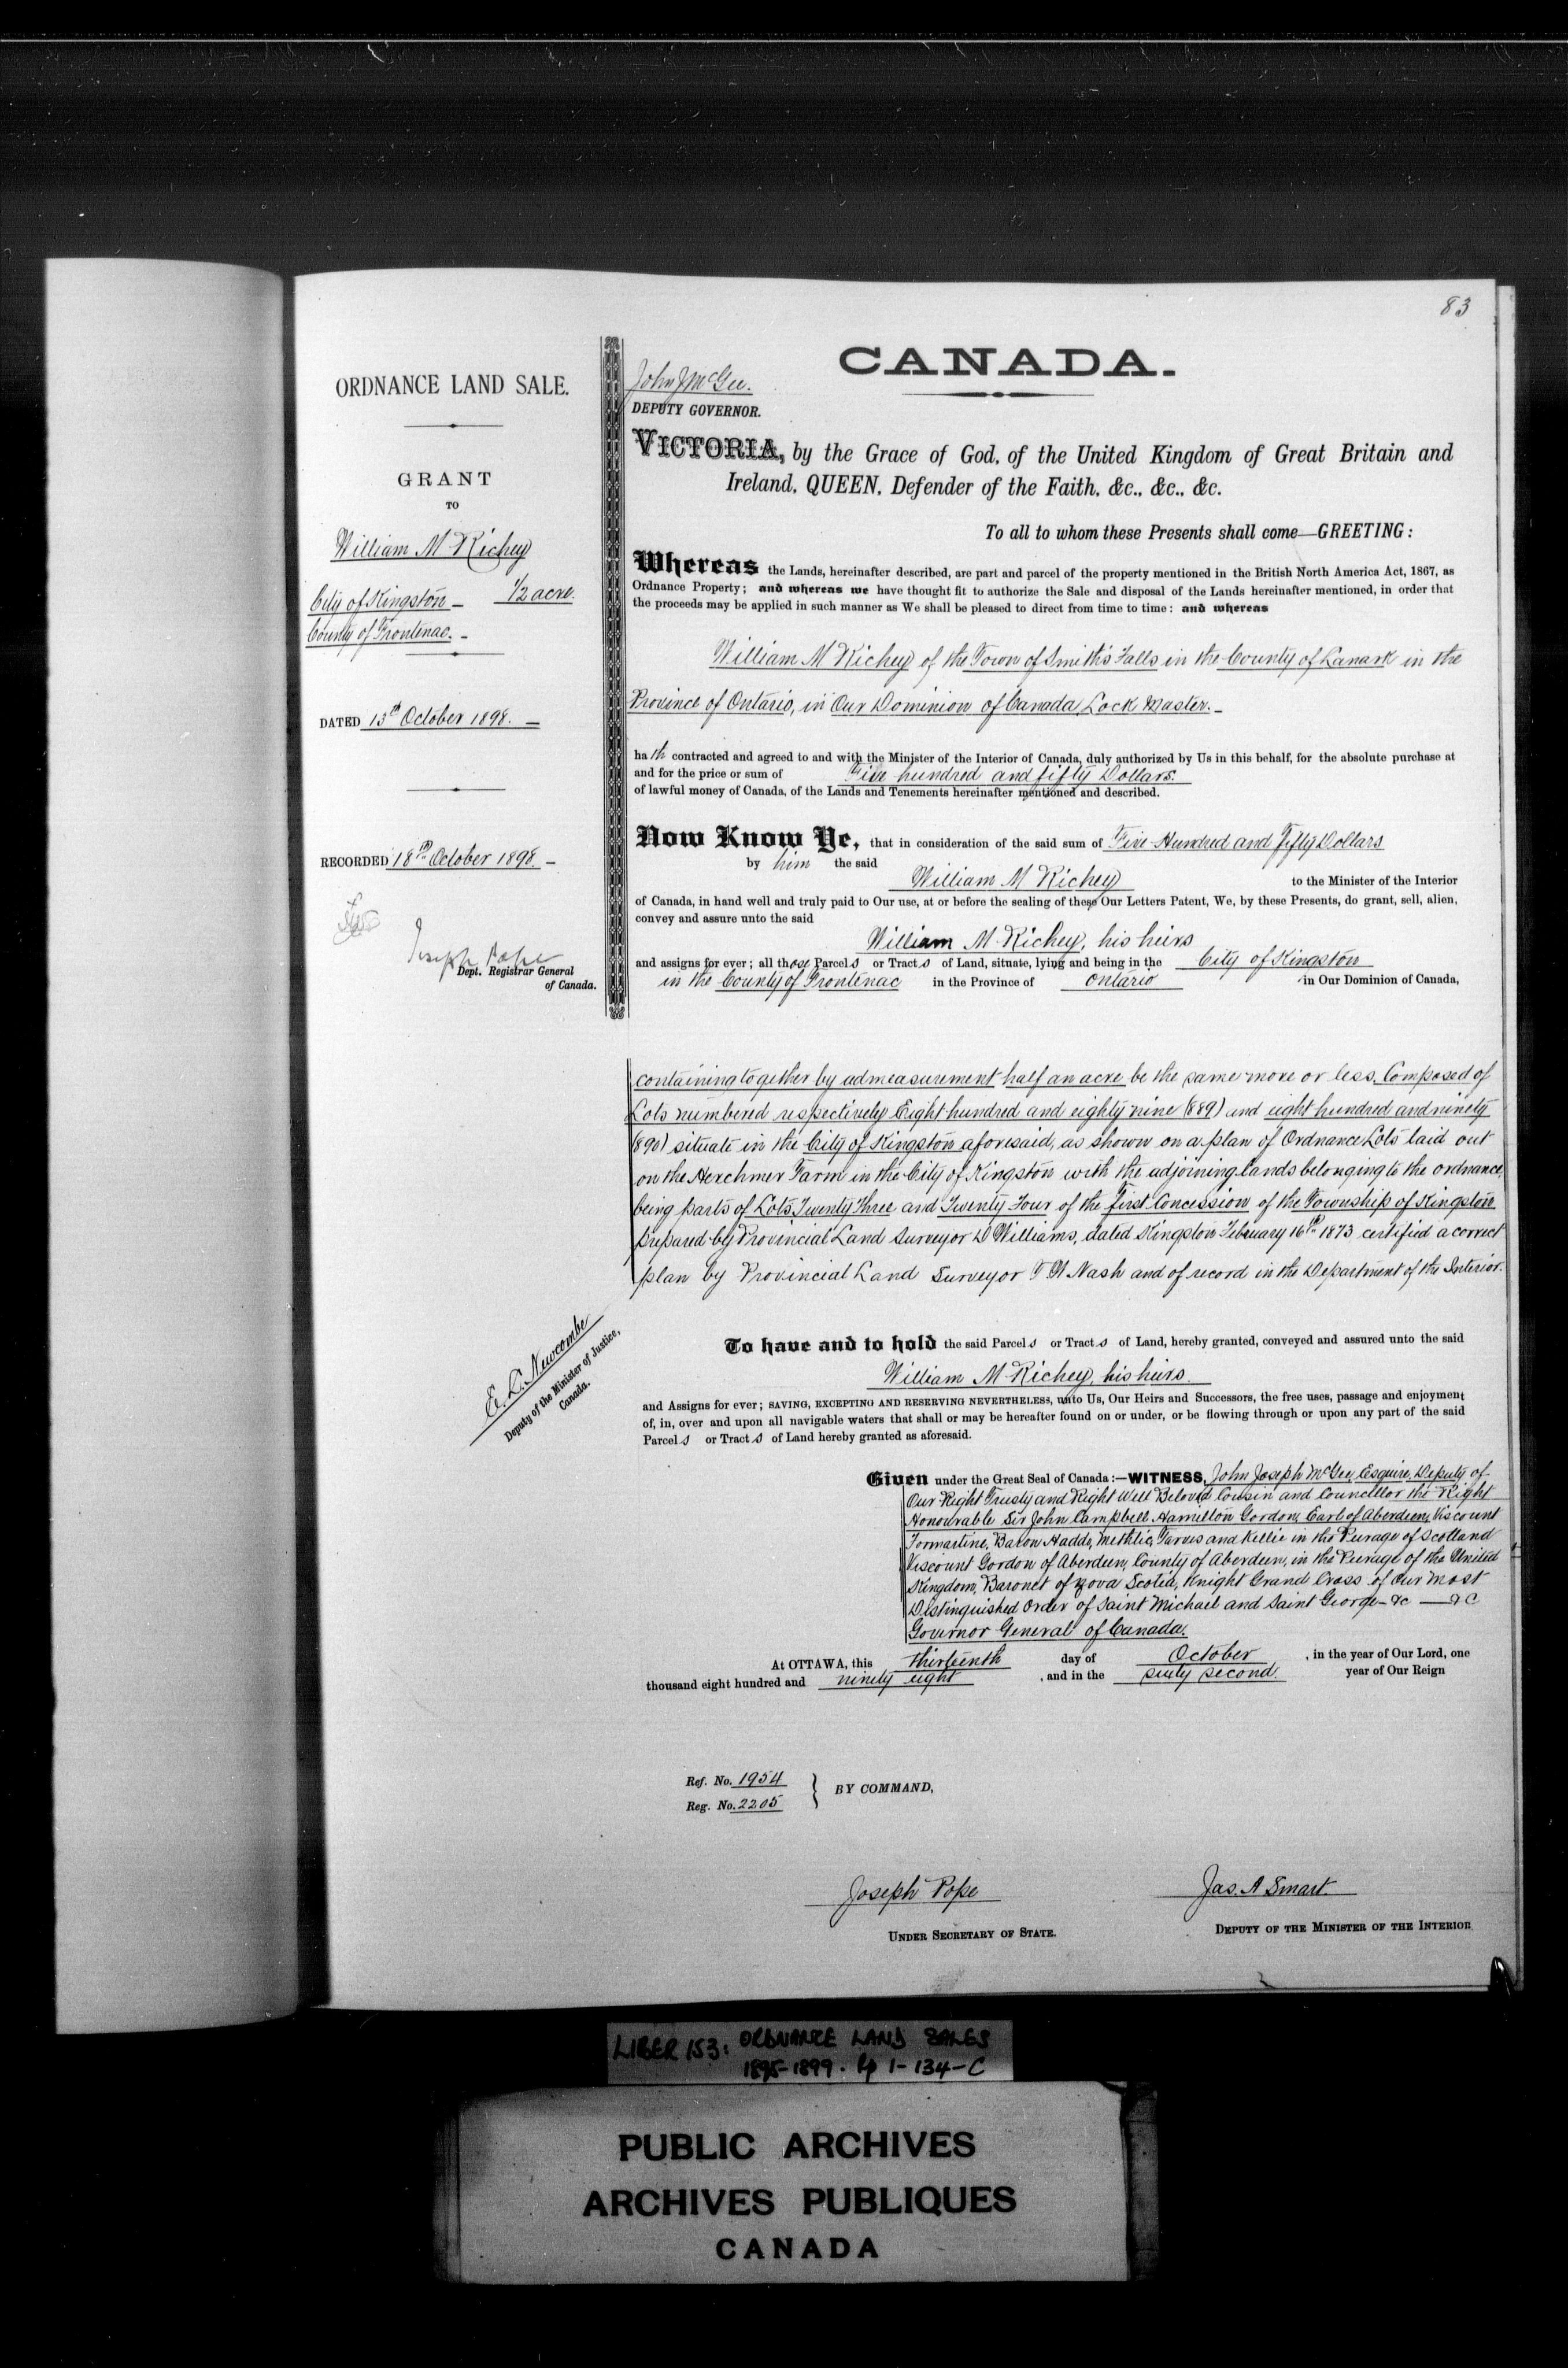 83
ORDNANCE LAND SALE.
GRANT
TO
William M Richey
City of Kingston – 1/2 acre.
County of Frontenac. –
DATED 13th October 1898. –
RECORDED 18th October 1898 –
Joseph Pope
Dept. Registrar General
of Canada.
CANADA.
John J McGee.
DEPUTY GOVERNOR.
VICTORIA, by the Grace of God, of the United Kingdom of Great Britain and
Ireland, QUEEN, Defender of the Faith, &c., &c., &c.
To all to whom these Presents shall come—GREETING:
Whereas the Lands, hereinafter described, are part and parcel of the property mentioned in the British North America Act, 1867, as
Ordnance Property; and whereas we have thought fit to authorize the Sale and disposal of the Lands hereinafter mentioned, in order that
the proceeds may be applied in such manner as We shall be pleased to direct from time to time: and whereas
William M Richey of the Town of Smith's Falls in the County of Lanark in the
Province of Ontario, in Our Dominion of Canada, Lock Master. –
hath contracted and agreed to and with the Minister of the Interior of Canada, duly authorized by Us in this behalf, for the absolute purchase at
and for the price or sum of Five hundred and fifty Dollars.
of lawful money of Canada, of the Lands and Tenements hereinafter mentioned and described.
Now Know Ye, that in consideration of the said sum of Five Hundred and Fifty Dollars
by him the said William M Richey to the Minister of the Interior
of Canada, in hand well and truly paid to Our use, at or before the sealing of these Our Letters Patent, We, by these Presents, do grant, sell, alien,
convey and assure unto the said
William M. Richey, his heirs
and assigns for ever; all those Parcels or Tracts of Land, situate, lying and being in the City of Kingston
in the County of Frontenac in the Province of Ontario in Our Dominion of Canada,
containing together by admeasurement half an acre be the same more or less, Composed of
Lots numbered respectively Eight hundred and eighty nine (889) and eight hundred and ninety
(890) situate in the City of Kingston aforesaid, as shown on a plan of Ordnance Lots laid out
on the Herchmer Farm in the City of Kingston with the adjoining lands belonging to the ordnance,
being parts of Lots Twenty Three and Twenty Four of the First Concession of the Township of Kingston
prepared by Provincial Land Surveyor D Williams, dated Kingston February 16th 1873 certified a correct
plan by Provincial Land Surveyor T W Nash and of record in the Department of the Interior.
E. L. Newcombe
Deputy of the Minister of Justice,
Canada.
To have and to hold the said Parcels or Tracts of Land, hereby granted, conveyed and assured unto the said
William M Richey, his heirs.
and Assigns for ever; SAVING, EXCEPTING AND RESERVING NEVERTHELESS, unto Us, Our Heirs and Successors, the free uses, passage and enjoyment
of, in, over and upon all navigable waters that shall or may be hereafter found on or under, or be flowing through or upon any part of the said
Parcels or Tracts of Land hereby granted as aforesaid.
Given under the Great Seal of Canada:—WITNESS, John Joseph McGee, Esquire, Deputy of
Our Right Trusty and Right Well Beloved Cousin and Councillor the Right
Honourable Sir John Campbell Hamilton Gordon, Earl of Aberdeen, Viscount
Formartine, Baron Haddo, Methlic, Tarves and Kellie in the Peerage of Scotland
Viscount Gordon of Aberdeen, County of Aberdeen, in the Peerage of the United
Kingdom, Baronet of Nova Scotia, Knight Grand Cross of Our Most
Distinguished Order of Saint Michael and Saint George – &c — &c
Governor General of Canada.
At OTTAWA, this thirteenth day of October, in the year of Our Lord, one
thousand eight hundred and ninety eight, and in the sixty second. year of Our Reign
Ref. No. 1954
Reg. No. 2205
BY COMMAND,
Joseph Pope
UNDER SECRETARY OF STATE.
Jas. A Smart.
DEPUTY OF THE MINISTER OF THE INTERIOR
LIBER 153: ORDNANCE LAND SALES
1895-1899. pp 1-134-C
PUBLIC ARCHIVES
ARCHIVES PUBLIQUES
CANADA